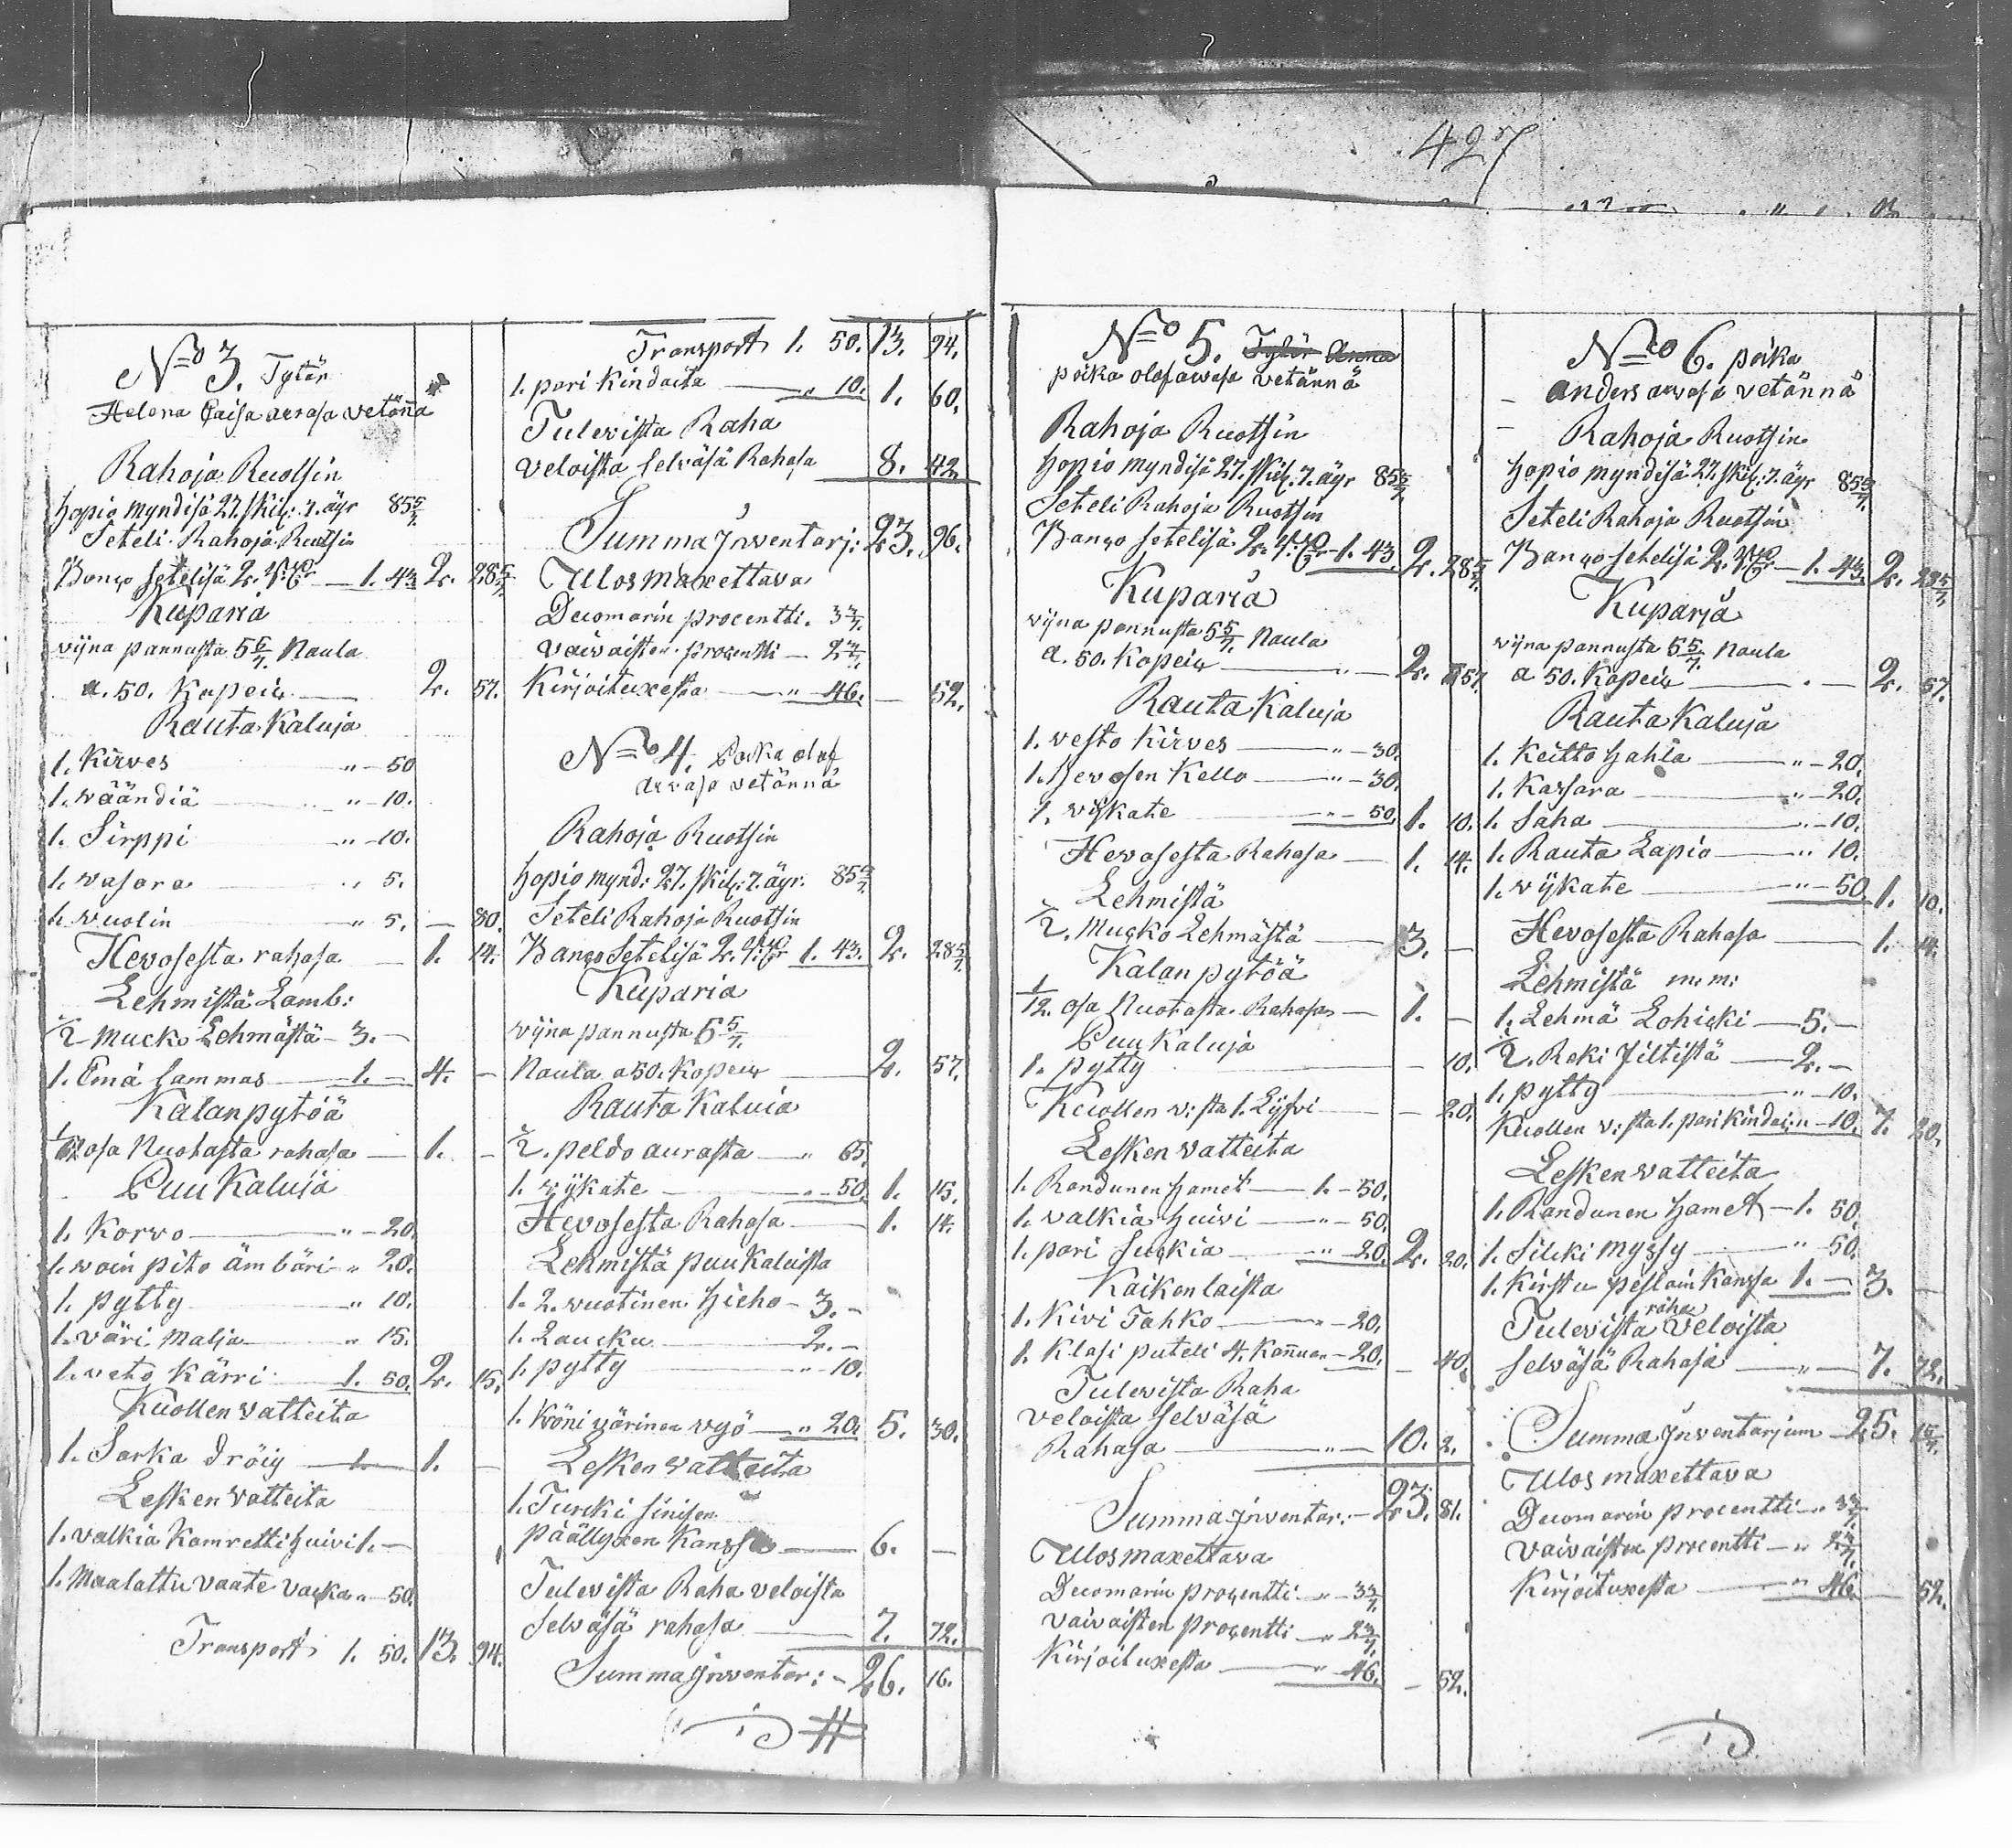 427
No 3. Tytär
Helena Caisa arvasa vetännä
Rahoja Ruotsin
hopio myndisä 27. skil: 7. äyr 85 5/7.
Seteli Rahoja Ruotsin
Banco Setelisä 2. — 1. 43. 2. 28 5/7.
Kuparia
vijna pannusta 5 5/7. Naula
a. 50. Kopeic — 2. 57.
Rauta Kaluja
1. Kirves „ — 50
1. wäändiä — „ — 10.
1. Sirppi „ — 10.
1. vasara „ 5.
1. vuolin „ 5. — 80.
Hevosesta rahasa — 1. 14.
Lehmistä Lamb:
1/2 Mucko Lehmästä — 3. —
1. Emä lammas — 1. — 4. —
Kalanpytöä
1/12 osa Nuotasta rahasa — 1. —
Puu Kaluja
1. Korvo — „ — 20.
1. voin pito ämbäri „ 20.
1. pytty „ 10.
1. väri Malja — „ 15.
1. veto Kärri — 1. 50. 2. 15.
Kuollen vatteita
1. Sarka Tröijy — 1. 1. —
Lesken vatteita
1. valkia Kamretti huivi 1. —
1. Maalattu vaate vacka „ — 50.
Transport 1. 50. 13. 94.
Transport 1. 50. 13. 94.
1. pari Kindaita — „ 10. 1. 60.
Tulevista Raha
veloista selväsä Rahasa 8. 42.
Summa Inventarj: 23. 96.
Ulos maxettava
Duomarin procentti. 3 3/7.
Vaivaisten procentti — 2 4/7.
Kirjoituxesta — „ 46. — 52.
No 4. Poika Olof
arvasa vetännä
Rahoja Ruotsin
hopio mynd: 27. skil: 7. äyr. 85 5/7.
Seteli Rahoja Ruotsin
Banco Setelisä 2. 1. 43. 2. 28 5/7.
Kuparia
vijna pannusta 5 5/7.
Naula a 50. Kopeic — 2. 57.
Rauta Kaluia
1/2. peldo aurasta — „ 65.
1. vijkate — „ — 50. 1. 15.
Hevosesta Rahasa — 1. 14.
Lehmistä puu Kaluista
1. 2. vuotinen hieho — 3. —
1. Laucku — 2. —
1. pytty — „ — 10.
1. värinen vyö — „ 20. 5. 30.
Lesken vatteita
1. Turcki sinisen
päällyxen Kanssa — 6. —
Tulevista Raha veloista
Selväsä rahasa — 7. 72.
Summa Inventar: — 26. 16.
No 5. Tytär Anna
poika Olof arvasa vetännä
Rahoja Ruotsin
hopio myndisä 27. skil: 7. äyr 85 5/7.
Seteli Rahoja Ruotsin
Banco Setelisä 2. — 1. 43. 2. 28 5/7.
Kuparia
vijna pannusta 5 5/7. Naula
a. 50. Kopeic — „ — 2. 57.
Rauta Kaluja
1. vesto Kirves — „ — 30.
1. Hevosen Kello — „ — 30.
1. vijkate — „ — 50. 1. 10.
Hevosesta Rahasa — 1. 14.
Lehmistä
1/2. Mucko Lehmästä — 3. —
Kalan pytöä
1/12. osa Nuotasta Rahasa — 1. —
Puu Kaluja
1. pytty — 10.
Kuollen v:sta 1. Lijfvi — — 20.
Lesken vatteita
1. Randunen hamet — 1. — 50.
1. valkia huivi — „ — 50.
1. pari Suckia — „ 20. 2. 20.
Kaikenlaista
1. Kivi Tahko — „ — 20.
1. Klasi puteli 4. Kannun — 20. — 40.
Tulevista Raha
veloista selväsä
Rahasa — „ — 10. 2.
Summa Inventar: — 23. 81.
Ulos maxettava
Duomarin procentti „ — 3 3/7.
Vaivaisten procentti — „ 2 4/7.
Kirjoituxesta — „ — 46. — 52.
No 6. poika
Anders arvasa vetännä
Rahoja Ruotsin
hopio myndisä 27. skil: 7. äyr 85 5/7.
Seteli Rahoja Ruotsin
Banco Setelisä 2. — 1. 43. 2. 28 5/7.
Kuparia
vijna pannusta 5 5/7. Naula
a 50. Kopeic — . — 2. 57.
Rauta Kaluja
1. Keitto hahla — „ — 20.
1. Kassara — „ — 20.
1. Saha — „ — 10.
1. Rauta Lapio — „ 10.
1. vijkate — „ — 50. 1. 10.
Hevosesta Rahasa — 1. 14.
Lehmistä m: m:
1. Lehmä Lohicki — 5. —
1/2. Reki Jiltistä — 2. —
1. pytty — „ — 10.
Kuollen v:sta 1. pari Kindai: „ — 10. 7. 20.
Lesken vatteita
1. Randunen hamet — 1. 50.
1. Silcki myssy — „ 50.
1. Kirstu peslain Kanssa 1. — 3. —
raha
Tulevista veloista
selväsä Rahasa — „ — 7. 72.
Summa Inventarjum — 25.
Ulos maxettava
Duomarin procentti — „ 3 3/7.
Vaivaisten procentti — „ 2 4/7.
Kirjoituxesta — „ 46. — 52.